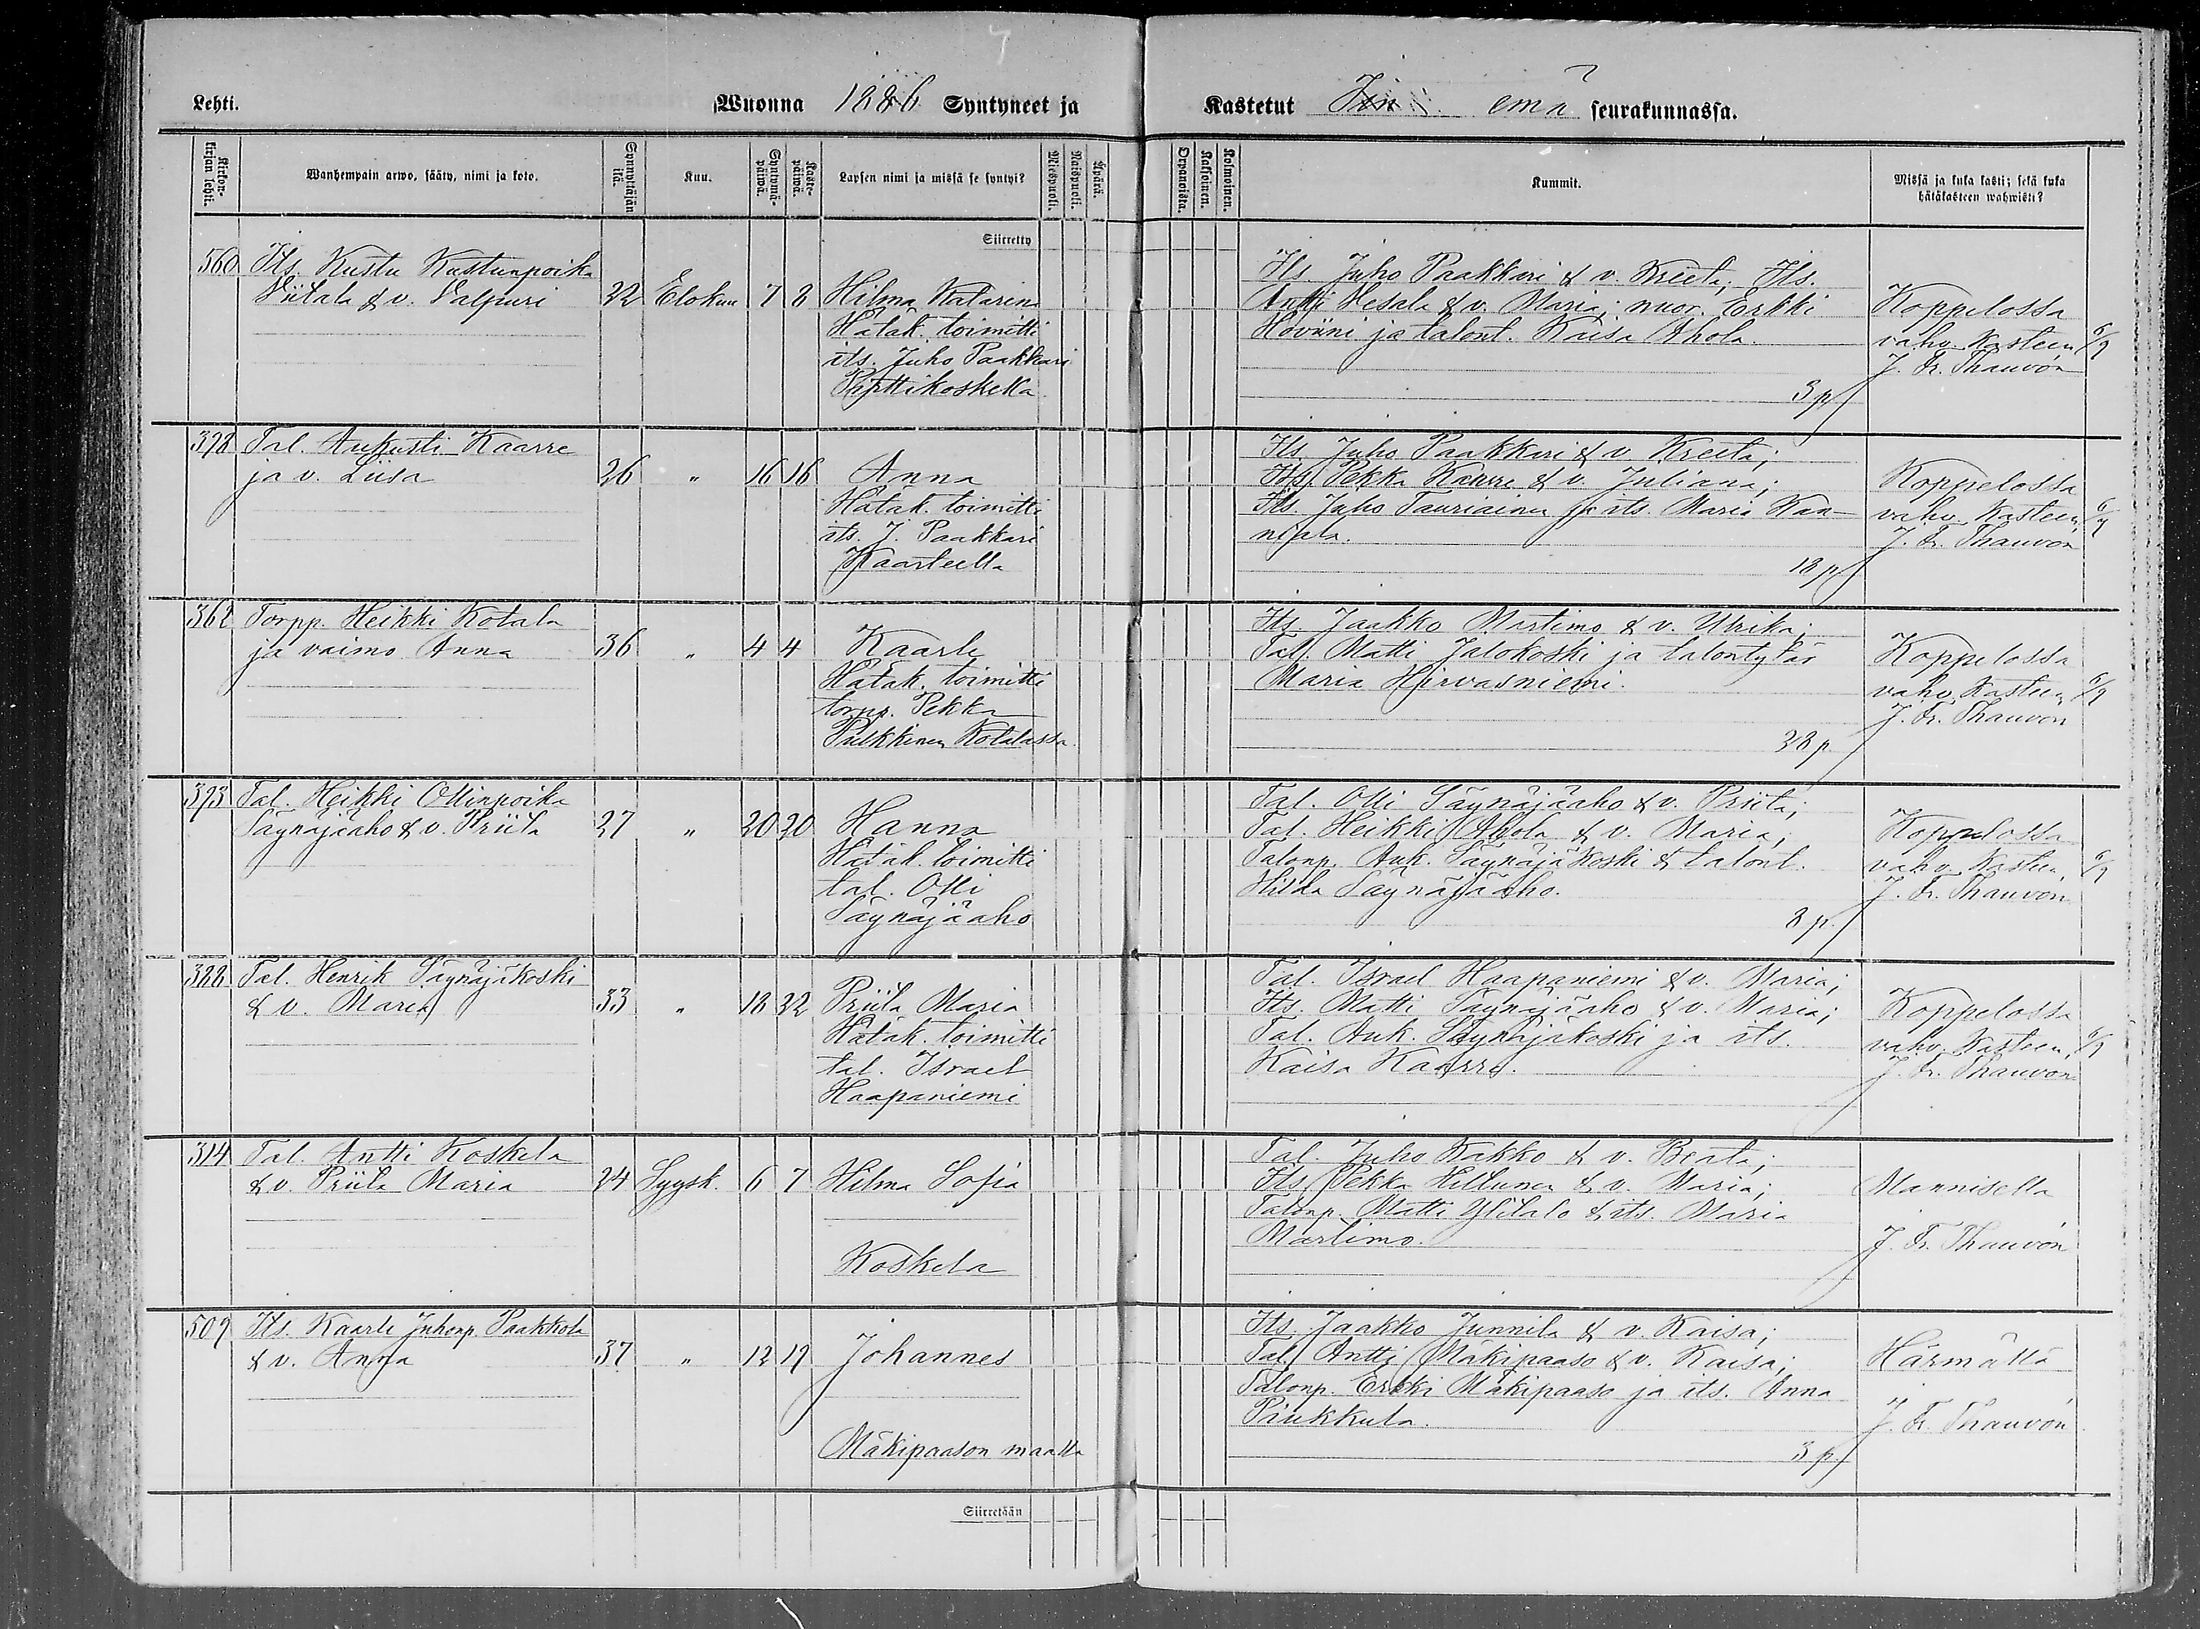 Lehti. Wuonna 1886 Syntyneet ja Kastetut Iin emä seurakunnassa.
Kirkonkirjan lehti.
Wanhempain arwo, sääty, nimi ja koto.
Synnyttäjän ikä.
Kuu.
Syntymäpäiwä.
Kastepäiwä.
Lapsen nimi ja missä se syntyi?
Miespuoli.
Waispuoli.
Äpärä.
Orpanoista.
Kaksoinen.
Kolmoinen.
Kummit.
Missä ja kuka kasti; sekä kuka
hätäkasteen wahwisti?
Siirretty
560 Its. Kustu Kustunpoika
Viitala & v. Valpuri 22 Elokuu 7 8 Hilma Katarina
Hätäk. toimitti
its. Juho Paakkari
Pirttikoskella
Its. Juho Paakkari & v. Kreeta; Its.
Antti Vesala & v. Maria; nuor. Erkki
Hoviini ja talont. Kaisa Ahola.
3 p
Koppelossa
vahv. Kasteen 6/9
J. Fr. Thauvón
398 Tal. Aukusti Kaarre
ja v. Liisa 26 " 16 16 Anna
Hätäk. toimitti
its. J. Paakkari
Kaarteella
Its. Juho Paakkari & v. Kreeta;
Its. Pekka Kaarre & v. Juliana;
Its. Juho Tauriainen ja its. Maria Kan-
nijala.
18 p
Koppelossa
vahv. Kasteen 6/9
J. Fr. Thauvón
362 Torpp. Heikki Kotala
ja vaimo Anna 36 " 4 4 Kaarle
Hätäk. toimitti
torpp. Pekka
Pulkkinen Kotalassa.
Its. Jaakko Martimo & v. Ulrika;
Tal. Matti Jalokoski ja talontytär
Maria Hirvasniemi.
38 p
Koppelossa
vahv. Kasteen 6/9
J. Fr. Thauvón
393 Tal. Heikki Ollinpoika
Säynäjäaho & v. Priita 27 " 20 20 Hanna
Hätäk. toimitti
tal. Olli
Säynäjäaho
Tal. Olli Säynäjäaho & v. Priita;
Tal. Heikki Ahola & v. Maria;
Talonp. Auk. Säynäjäkoski & talont.
Hilda Säynäjäaho.
8 p.
Koppelossa
vahv. Kasteen 6/9
J. Fr. Thauvón
388 Tal. Henrik Säynäjäkoski
& v. Maria 33 " 18 22 Priita Maria
Hätäk. toimitti
tal. Israel
Haapaniemi
Tal. Israel Haapaniemi & v. Maria;
Its. Matti Säynäjäaho & v. Maria;
Tal. Auk. Säynäjäkoski ja its.
Kaisa Kaarre.
Koppelossa
vahv. Kasteen 6/9
J. Fr. Thauvón
314 Tal. Antti Koskela
& v. Priita Maria 24 Syysk. 6 7 Hilma Sofia
Koskela
Tal. Juho Kakko & v. Beata;
Its. Pekka Hiltunen & v. Maria;
Talonp. Matti Ylitalo & its. Maria
Martimo.
Mannisella
J. Fr. Thauvón
509 Its. Kaarle Juhonp. Paakkola
& v. Anna 37 " 12 19 Johannes
Mäkipaason maalla
Its. Jaakko Junnila & v. Kaisa;
Tal. Antti Mäkipaaso & v. Kaisa;
Talonp. Erkki Mäkipaaso ja its. Anna
Paukkula.
3 p
Härmällä
J. Fr. Thauvón
Siirretään